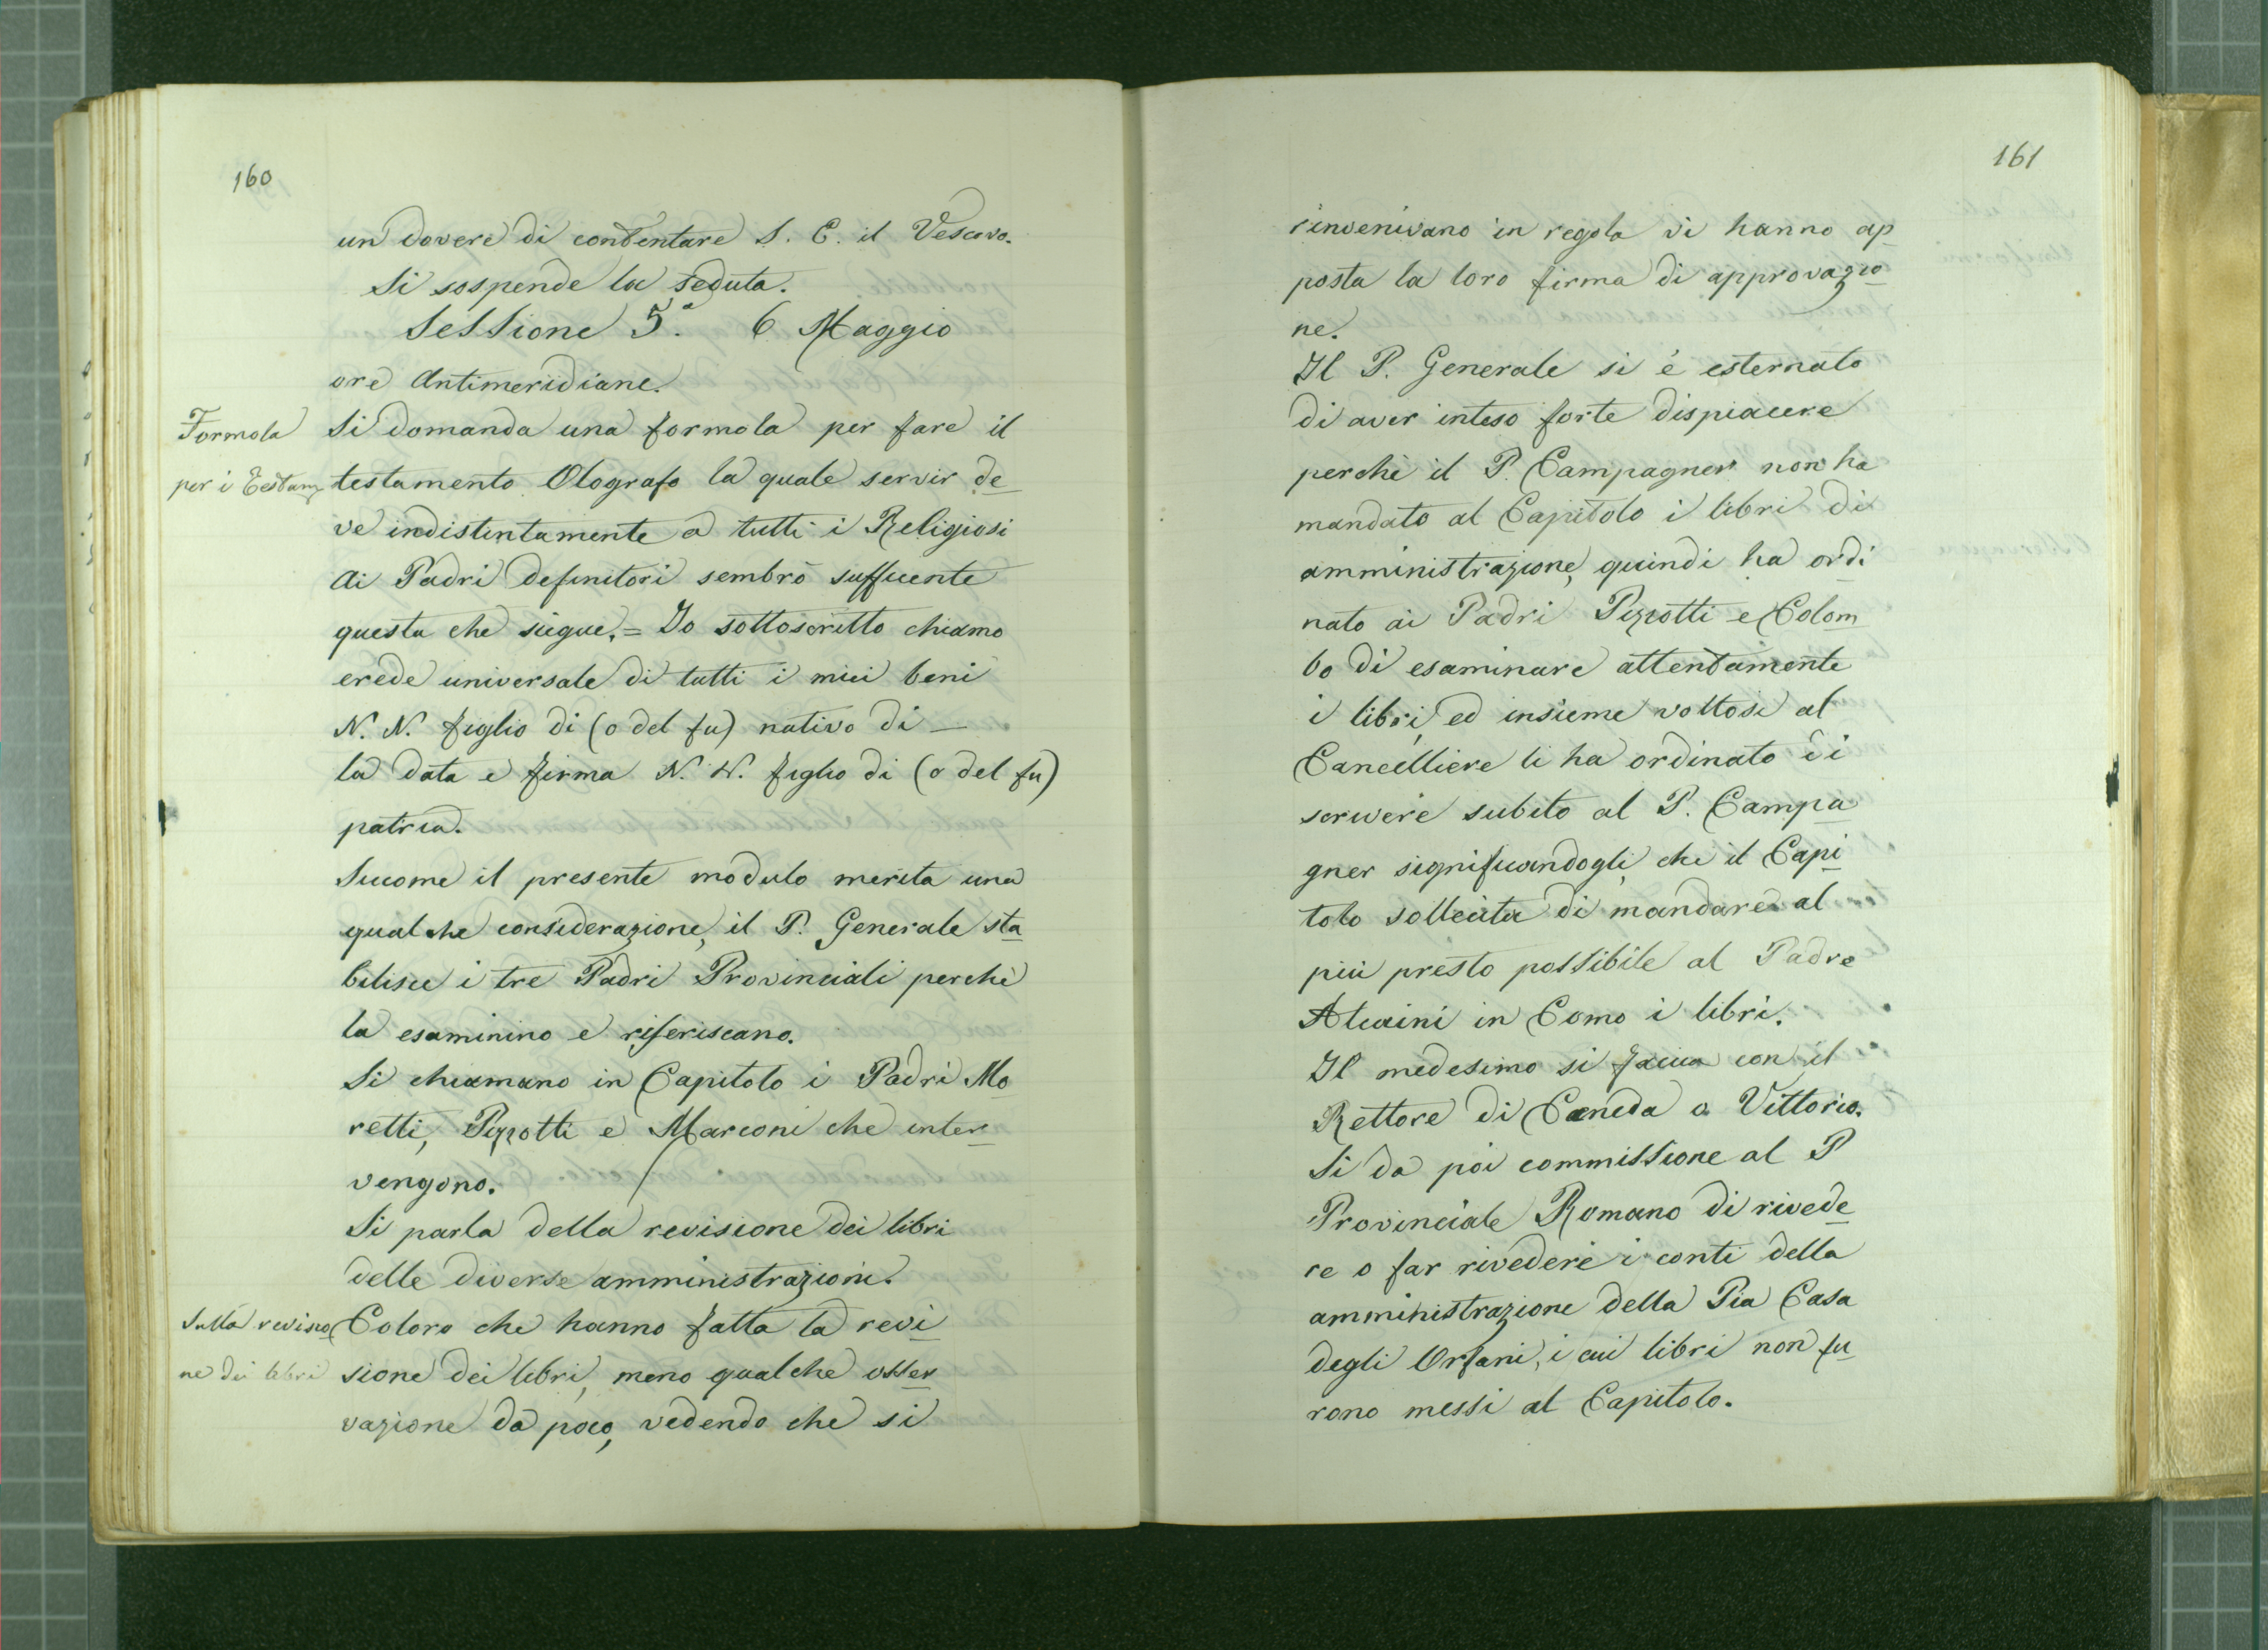 160
un dovere di contentare S. E. il Vescovo.
Si sospende la seduta.
Sessione 5ª. 6 Maggio
ore Antimeridiane.
Formola
per i Testam.
Si domanda una formola per fare il
testamento Olografo la quale servir de
ve indistintamente a tutti i Religiosi
Ai Padri definitori sembrò sufficiente
questa che siegue, = Io sottoscritto chiamo
erede universale di tutti i miei beni
N. N. figlio di (o del fu) nativo di —
la data e firma N. N. figlio di (o del fu)
patria.
Siccome il presente modulo merita una
qualche considerazione, il P. Generale sta
bilisce i tre Padri Provinciali perchè
la esaminino e riferiscano.
Si chiamano in Capitolo i Padri Mo
retti, Pizzotti e Marconi che inter
vengono.
Si parla della revisione dei libri
delle diverse amministrazioni.
Sulla revisio
ne dei libri
Coloro che hanno fatta la revi
sione dei libri, meno qualche osser
vazione da poco, vedendo che si
161
rinvenivano in regola vi hanno ap
posta la loro firma di approvazio
ne.
Il P. Generale si è esternato
di aver inteso forte dispiacere
perchè il P. Campagner non ha
mandato al Capitolo i libri di
amministrazione, quindi ha ordi
nato ai Padri Pizzotti e Colom
bo di esaminare attentamente
i libri, ed insieme voltosi al
Cancelliere li ha ordinato di
scrivere subito al P. Campa
gner significandogli, che il Capi
tolo sollecita di mandare al
più presto possibile al Padre
Alcaini in Como i libri.
Il medesimo si faccia con il
Rettore di Ceneda o Vittorio.
Si da poi commissione al P
Provinciale Romano di rivede
re o far rivedere i conti della
amministrazione della Pia Casa
degli Orfani, i cui libri non fu
rono messi al Capitolo.